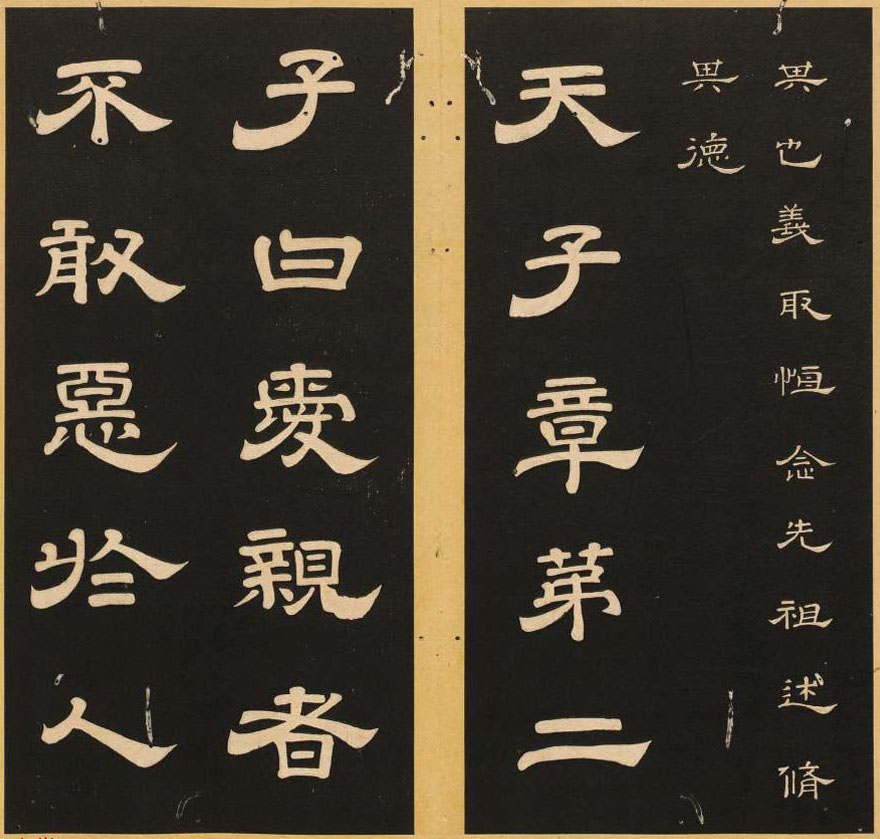 其也義取恒念先祖述脩
其德
天子章苐二
子曰愛親者
不敢惡於人